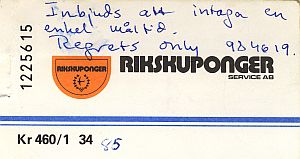 Inbjuds att intaga en
enkel måltid.
Regrets only 984619.
1225615
RIKSKUPONGER
SERVICE AB
Kr 460/1 34 85